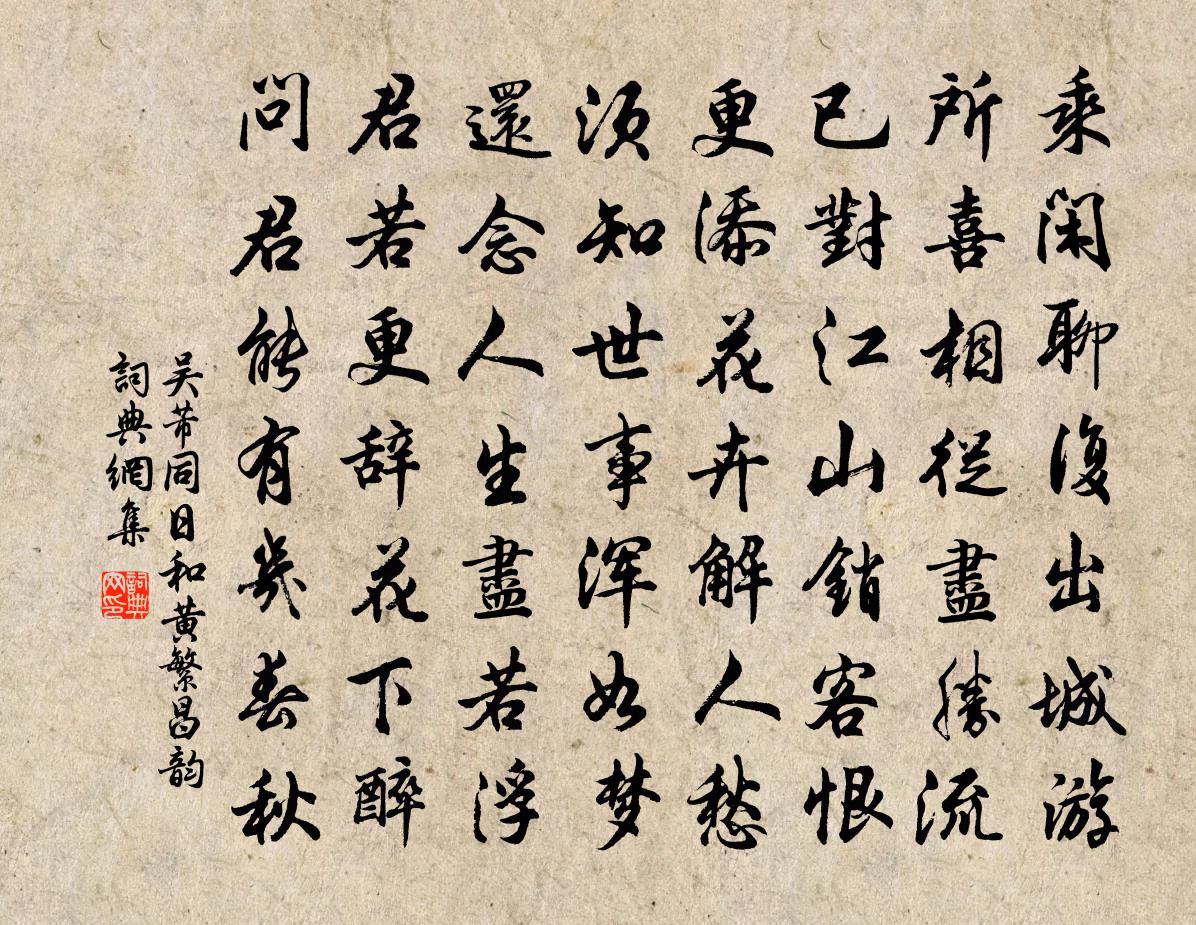 乘闲聊復出城游
所喜相從盡勝流
已對江山銷客恨
更添花卉解人愁
須知世事渾如梦
還念人生盡若浮
君若更辞花下醉
問君能有幾春秋
吴芾同日和黄繁昌韵
詞典網集
詞典
网印